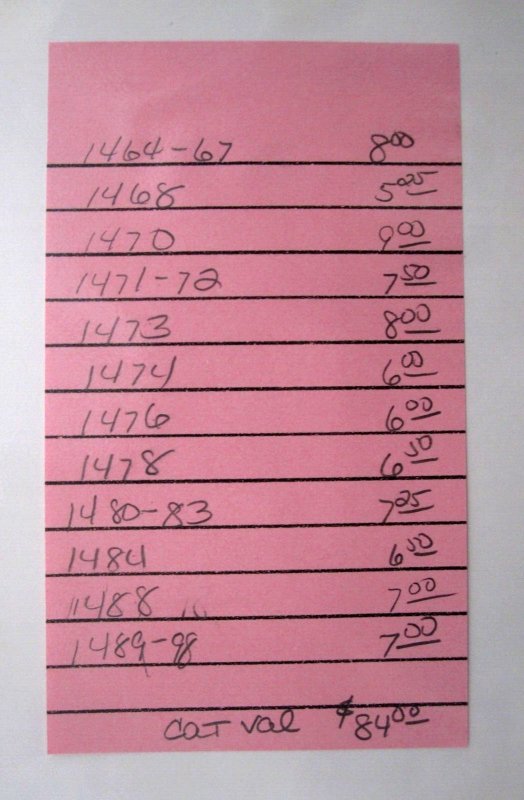 1464-67 8.00
1468 5.25
1470 9.00
1471-72 7.50
1473 8.00
1474 6.00
1476 6.00
1478 6.50
1480-83 7.25
1484 6.50
1488 7.00
1489-98 7.00
Cat val $84.00